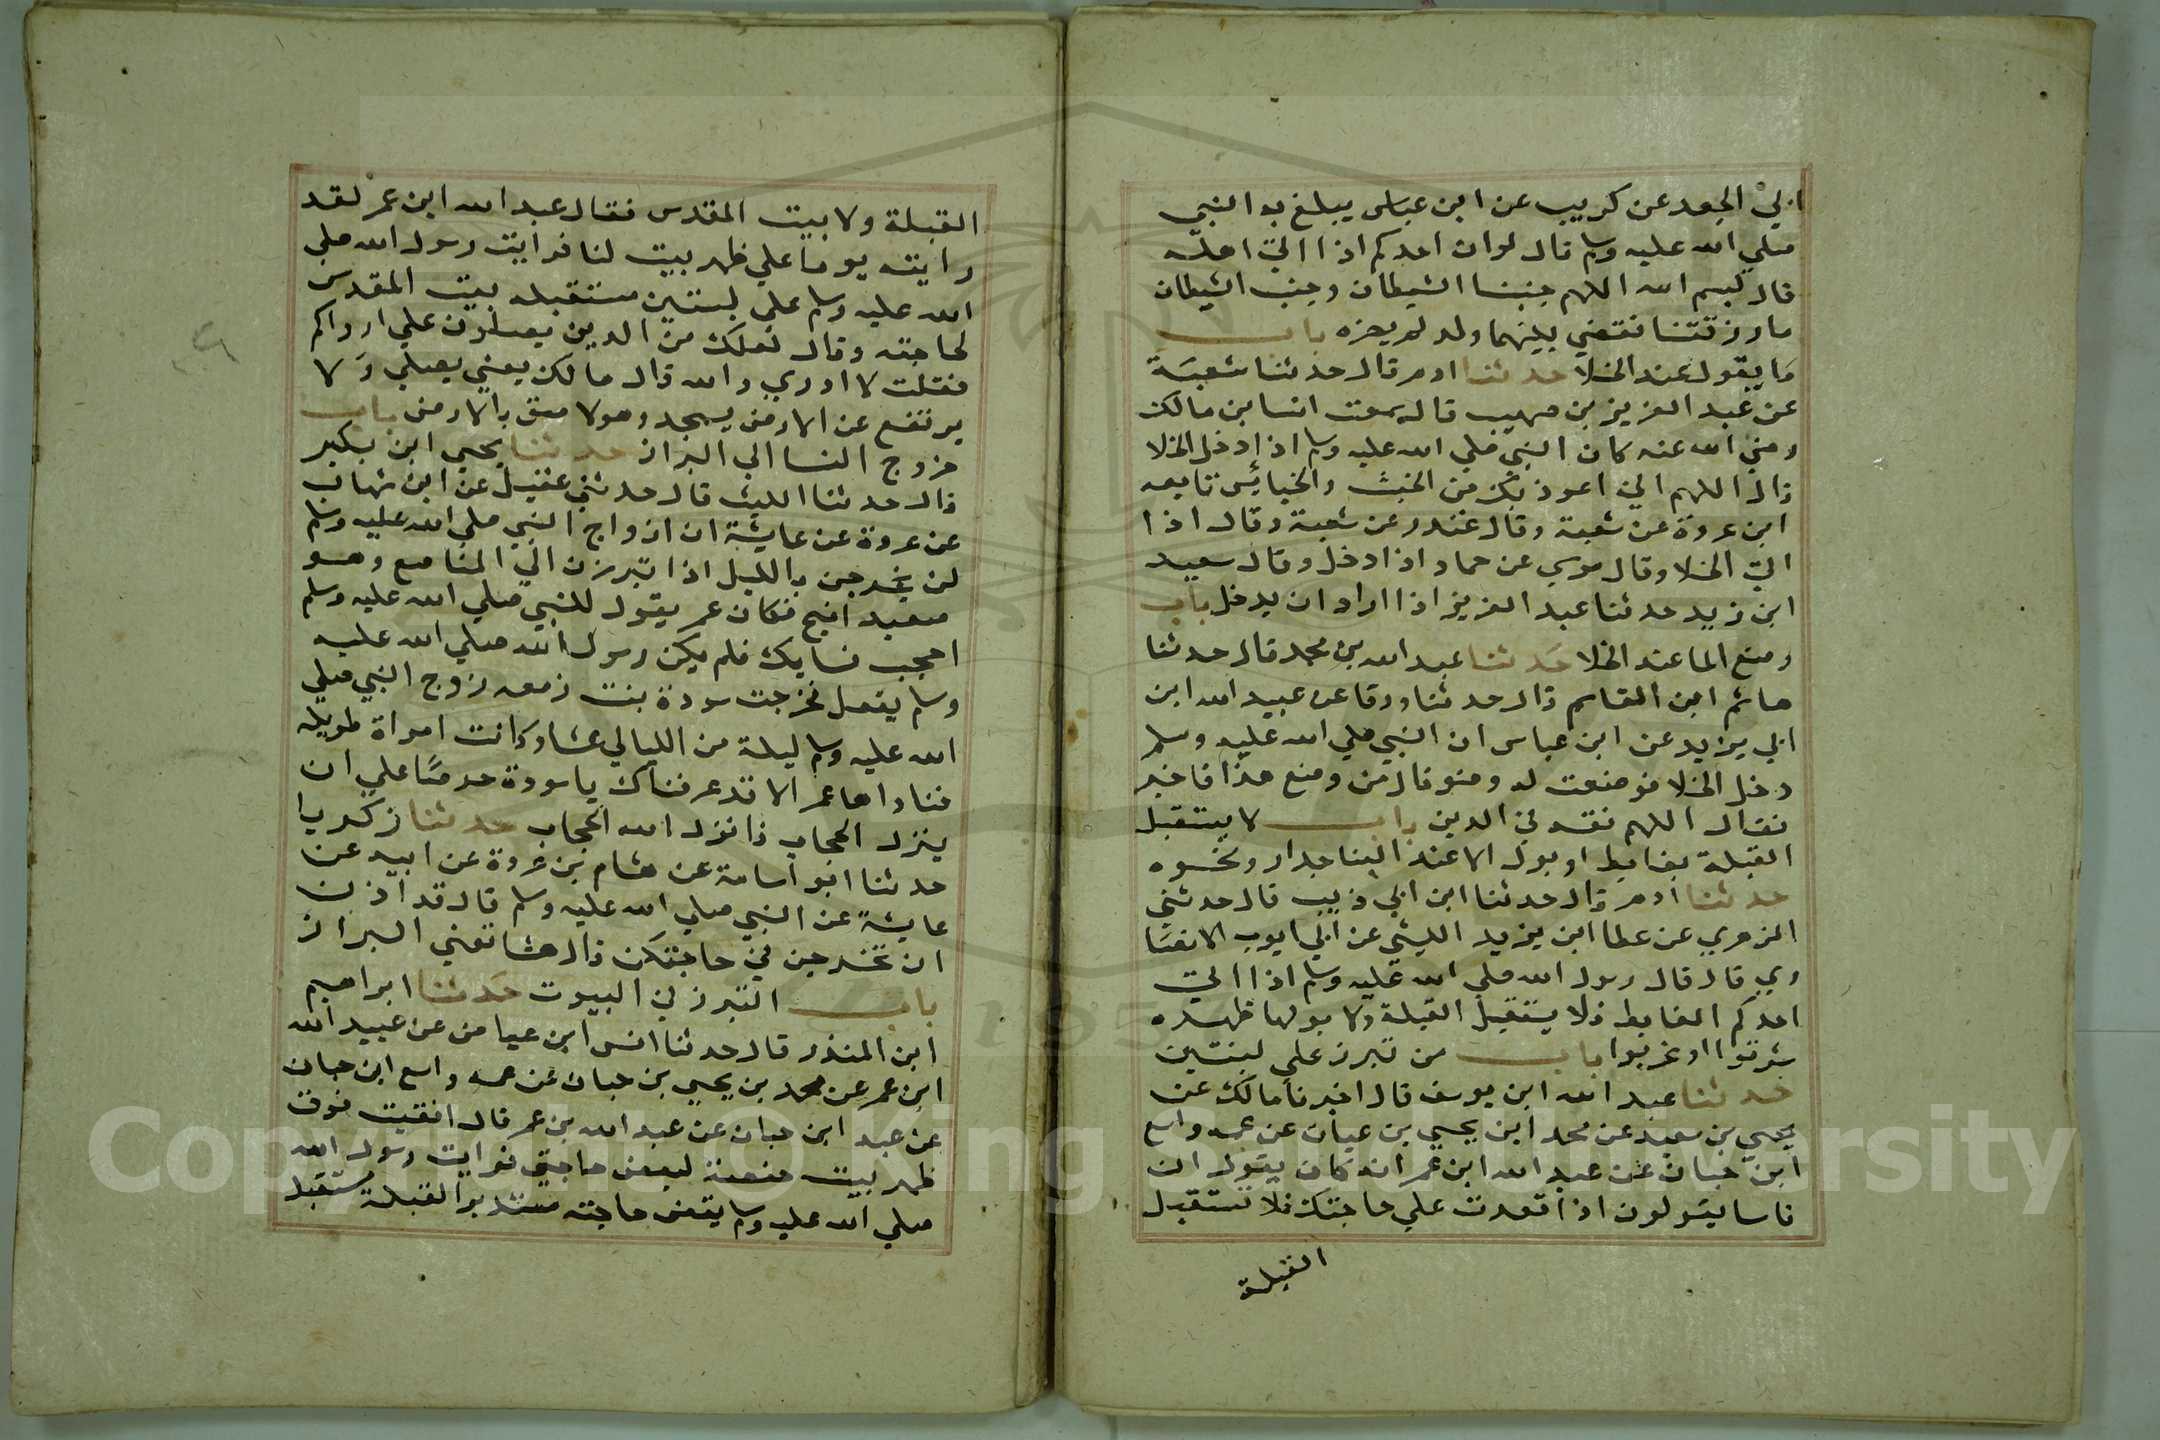 ابي الجعد عن كريب عن ابن عباس يبلغ به النبي
صلي الله عليه وسلم قال لوان احدكم اذا اتي اهله
قال بسم الله اللهم جنبنا الشيطان وجنب الشيطان
ما رزقتنا فقضي بينهما ولد لم يضره باب
ما يقول عند الخلا حدثنا ادم قال حدثنا شعبة
عن عبد العزيز بن صهيب قال سمعت انسا بن مالك
رضي الله عنه كان النبي صلي الله عليه وسلم اذا دخل الخلا
قال اللهم اني اعوذ بك من الخبث والخبايئس تابعه
ابن عروة عن شعبة وقال غندر عن شعبة وقال اذا
اتي الخلا وقال موسي عن حماد اذا دخل وقال سعيد
ابن زيد حدثنا عبد العزيز اذا اراد ان يدخل باب
وضع الما عند الخلا حدثنا عبد الله بن محمد قال حدثنا
هاشم ابن القاسم قال حدثنا ورقا عن عبيد الله ابن
ابي يزيد عن ابن عباس ان النبي صلي الله عليه وسلم
دخل الخلا فوضعت له وضو قال من وضع هذا فاخبر
فقال اللهم فقه في الدين باب لا يستقبل
القبلة بغايط او بول الا عند البنا جدار ونحوه
حدثنا ادم قال حدثنا ابن ابي ذييب قال حدثني
الزهري عن عطا ابن يزيد الليثي عن ابي ايوب الانصا
ري قال قال رسول الله صلي الله عليه وسلم اذا اتي
احدكم الغايط فلا يستقبل القبلة ولا يولها ظهره
شرقوا او غربوا باب من تبرز علي لبنتين
حدثنا عبد الله ابن يوسف قال اخبرنا مالك عن
يحيي بن سعيد عن محمد ابن يحيي بن حبان عن عمه واسع
ابن حبان عن عبد الله ابن عمر انه كان يقول ان
ناسا يقولون اذا قعدت علي حاجتك فلا تستقبل
القبلة
القبلة ولا بيت المقدس فقال عبد الله ابن عمر لقد
رايته يوما علي ظهر بيت لنا فرايت رسول الله صلي
الله عليه وسلم علي لبنتين مستقبله بيت المقدس
لحاجته وقال لعلك من الدين يصلون علي ارواكم
فقلت لا ادري والله قال مالك يعني يصلي ولا
يرتفع عن الارض يسجد وهو لاصق بالارض باب
خروج النسا الي البراز حدثنا يحيي ابن بكير
قال حدثنا الليث قال حدثني عقيل عن ابن شهاب
عن عروة عن عايشة ان ازواج النبي صلي الله عليه وسلم
كن يخرجن بالليل اذا تبرزن الي المناصع وهو
صعيد افيح فكان عمر يقول للنبي صلي الله عليه وسلم
احجب نسايك فلم يكن رسول الله صلي الله عليه
وسلم يفعل فخرجت سودة بنت زمعه زوج النبي صلي
الله عليه وسلم ليلة من الليالي عشا وكانت امراة طويله
فناداها عمر الا قد عرفناك يا سودة حرصًا علي ان
ينزل الحجاب فانزل الله الحجاب حدثنا زكريا
حدثنا ابو اسامة عن هشام بن عروة عن ابيه عن
عايشة عن النبي صلي الله عليه وسلم قال قد اذن
ان تخرجن في حاجتكن قال هشا تعني البراز
باب التبرز في البيوت حدثنا ابراهيم
ابن المنذر قال حدثنا انس ابن عياض عن عبيد الله
ابن عمر عن محمد بن يحيي بن حبان عن عمه واسع ابن حبان
عن عبد ابن حبان عن عبد الله بن عمر قال ارتقيت فوق
ظهر بيت حفصة لبعض حاجتي فرايت رسول الله
صلي الله عليه وسلم يقضي حاجته مستدبر القبلة مستقبل
Copyright © King Saud University